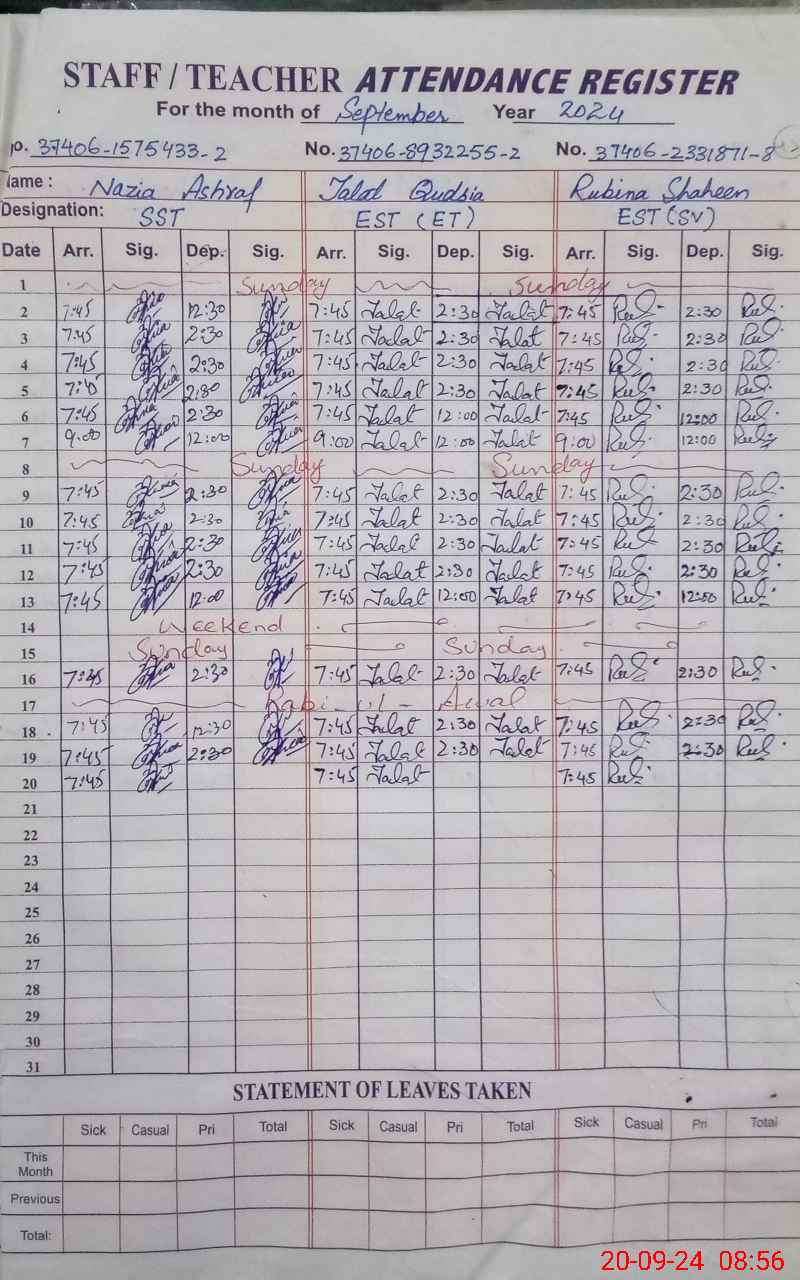 STAFF / TEACHER ATTENDANCE REGISTER
For the month of September Year 2024
No. 37406-1575433-2 No. 37406-8932255-2 No. 37406-2331871-8
Name : Nazia Ashraf Talat Qudsia Rubina Shaheen
Designation: SST EST (ET) EST (SV)
Date Arr. Sig. Dep. Sig. Arr. Sig. Dep. Sig. Arr. Sig. Dep. Sig.
1 Sunday Sunday
2 7:45 12:30 7:45 Talat 2:30 Talat 7:45 2:30
3 7:45 2:30 7:45 Talat 2:30 Talat 7:45 2:30
4 7:45 2:30 7:45 Talat 2:30 Talat 7:45 2:30
5 7:45 2:30 7:45 Talat 2:30 Talat 7:45 2:30
6 7:45 2:30 7:45 Talat 12:00 Talat 7:45 12:00
7 9:00 12:00 9:00 Talat 12:00 Talat 9:00 12:00
8 Sunday Sunday
9 7:45 2:30 7:45 Talat 2:30 Talat 7:45 2:30
10 7:45 2:30 7:45 Talat 2:30 Talat 7:45 2:30
11 7:45 2:30 7:45 Talat 2:30 Talat 7:45 2:30
12 7:45 2:30 7:45 Talat 2:30 Talat 7:45 2:30
13 7:45 12:00 7:45 Talat 12:00 Talat 7:45 12:00
14 Weekend
15 Sunday Sunday
16 7:45 2:30 7:45 Talat 2:30 Talat 7:45 2:30
17 Rabi-ul-Awal
18 7:45 12:30 7:45 Talat 2:30 Talat 7:45 2:30
19 7:45 2:30 7:45 Talat 2:30 Talat 7:45 2:30
20 7:45 7:45 Talat 7:45
21
22
23
24
25
26
27
28
29
30
31
STATEMENT OF LEAVES TAKEN
Sick Casual Pri Total Sick Casual Pri Total Sick Casual Pri Total
This Month
Previous
Total:
20-09-24 08:56